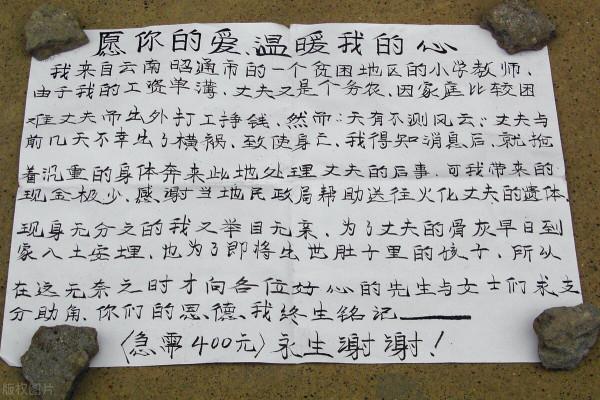 愿你的爱、温暖我的心
我来自云南昭通市的一个贫困地区的小学教师,
由于我的工资单薄,丈夫又是个务农、因家庭比较困
难丈夫而出外打工挣钱、然而:天有不测风云:丈夫与
前几天不幸出了横祸、致使身亡、我得知消息后、就拖
着沉重的身体奔来此地处理丈夫的后事、可我带来的
现金极少、感谢当地民政局帮助送往火化丈夫的遗体.
现身无分文的我又举目无亲、为了丈夫的骨灰早日到
家入土安埋、也为了即将出世肚子里的孩子、所以
在这无奈之时才向各位好心的先生与女士们求支
分助角、你们的恩、德、我终生铭记、
〈急需400元〉永生谢谢!
版权图片